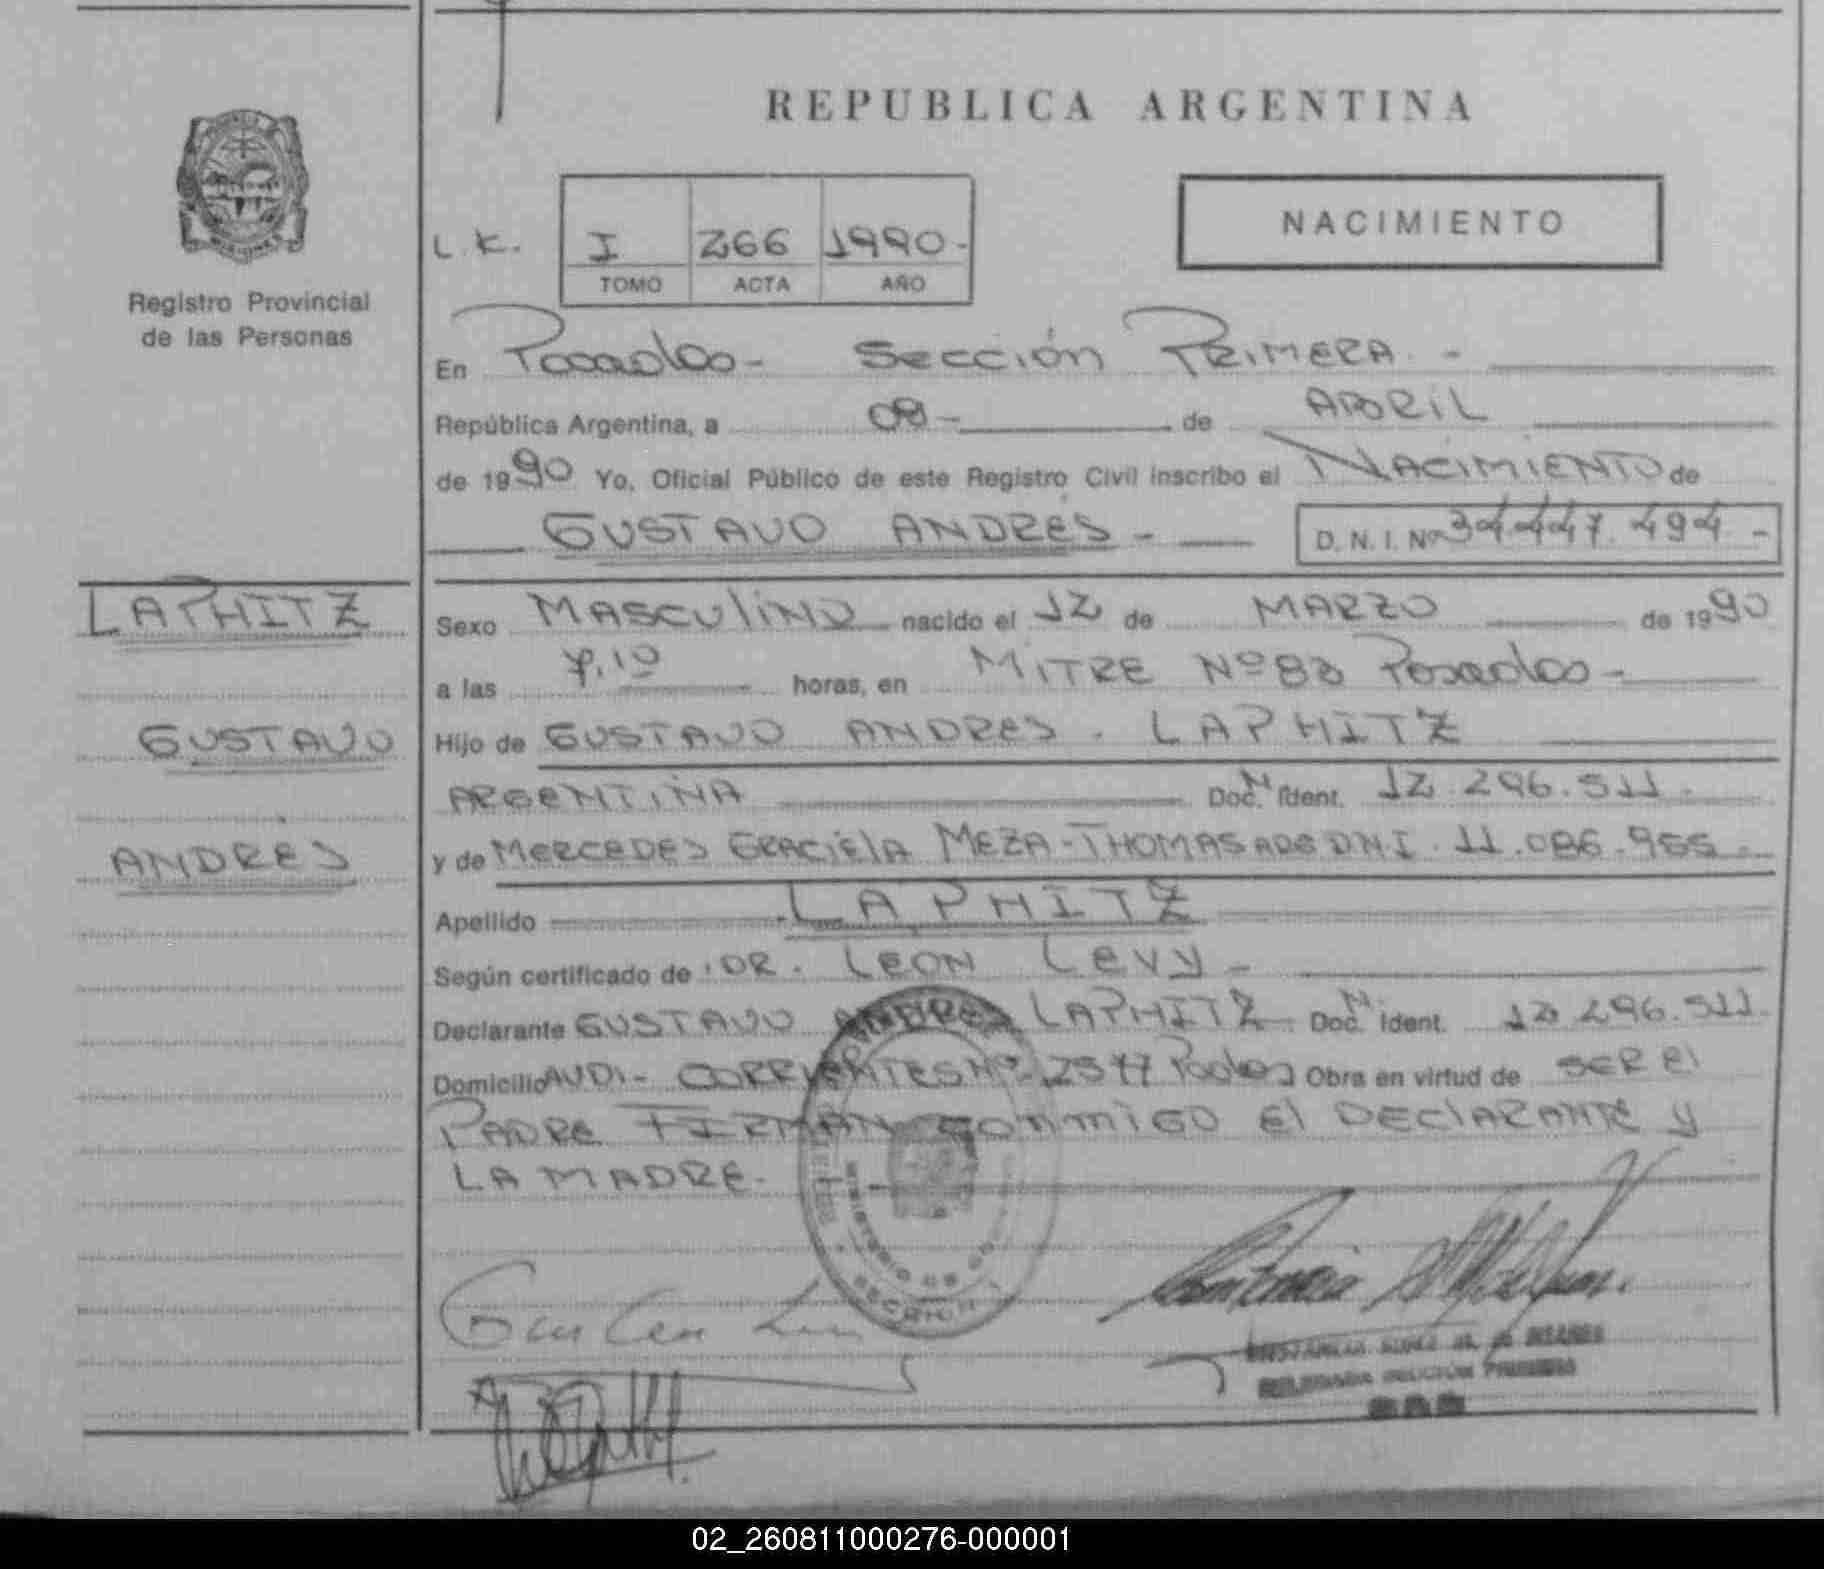 REPUBLICA ARGENTINA
NACIMIENTO
L.K. I 266 1990-
TOMO ACTA AÑO
Registro Provincial
de las Personas
En Posadas- Sección PRIMERA. -
República Argentina, a 08- de ABRIL
de 1990 Yo, Oficial Público de este Registro Civil inscribo el NACIMIENTO de
GUSTAVO ANDRÉS - D. N. I. Nº 34.447.494.-
LAPHITZ
GUSTAVO
ANDRÉS
Sexo MASCULINO nacido el 12 de MARZO de 1990
a las 7.10 horas, en MITRE Nº 83 Posadas-
Hijo de GUSTAVO ANDRES. LAPHITZ
ARGENTINA Doc. N. Ident. 12.296.511.
y de MERCEDES GRACIELA MEZA-THOMAS ARG DNI. 11.086.955.-
Apellido LAPHITZ
Según certificado de DR. LEON LEVY-
Declarante GUSTAVO ANDRES LAPHITZ Doc. N. Ident. 12.296.511.
Domicilio AVDA- CORRIENTES Nº 2577 Posadas Obra en virtud de SER El
PADRE FIRMAN CONMIGO El DECLARANTE y
LA MADRE.
MINISTERIO DE
SECCION 1
DELEGADA SECCION PRIMERA
02_260811000276-000001